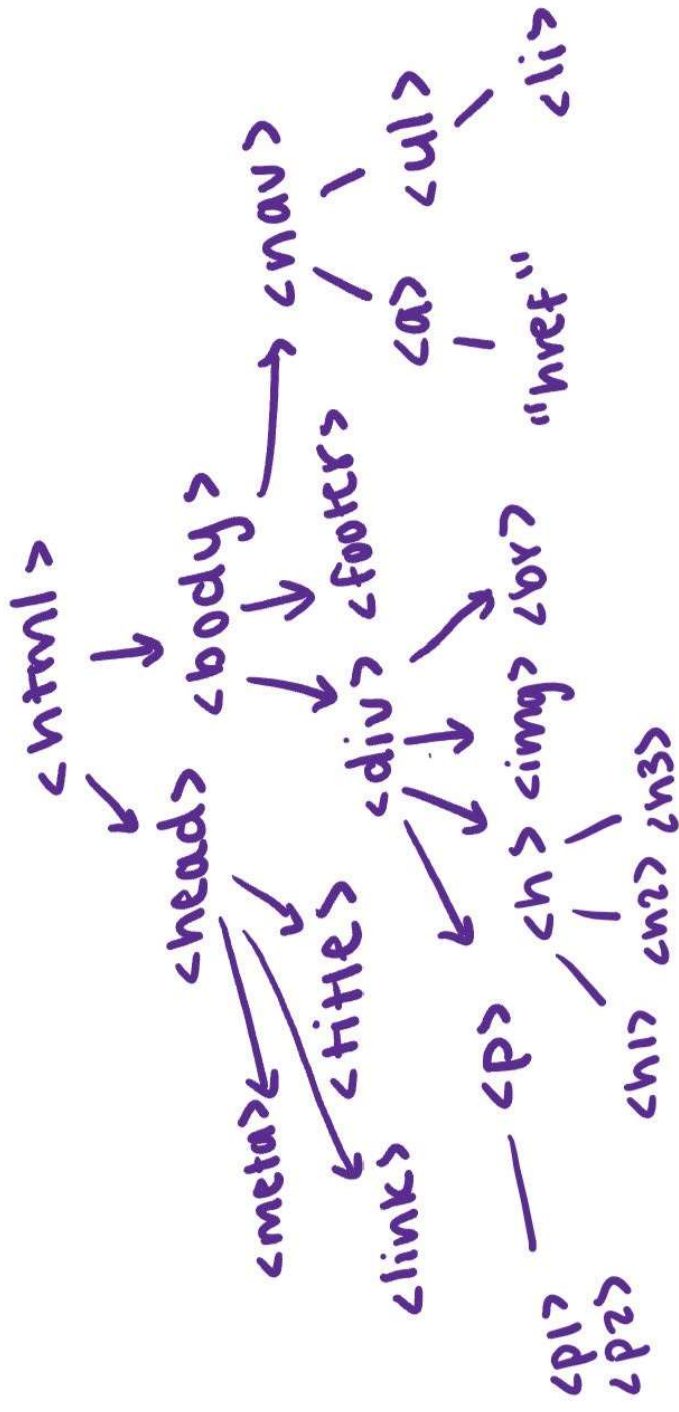 <html>
<head>
<body>
<meta>
<link>
<title>
<div>
<footer>
<nav>
<p>
<h>
<img>
<br>
<a>
<ul>
<p1>
<p2>
<h1>
<h2>
<h3>
"href"
<li>